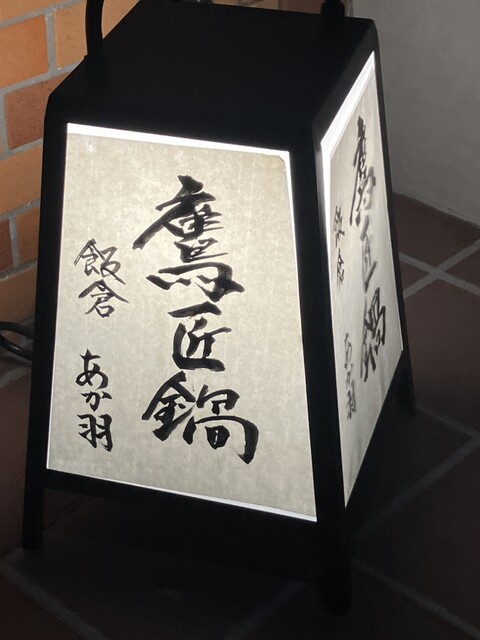 鷹匠鍋
飯倉
あか羽
鷹匠鍋
飯倉
あか羽